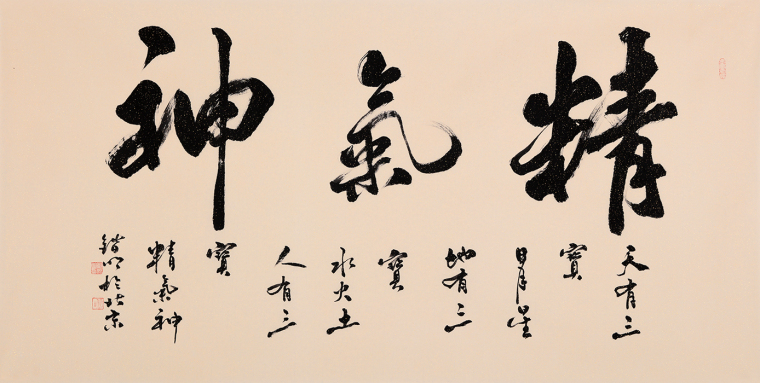 精氣神
天有三
寶
日月星
地有三
寶
水火土
人有三
寶
精氣神
於北京